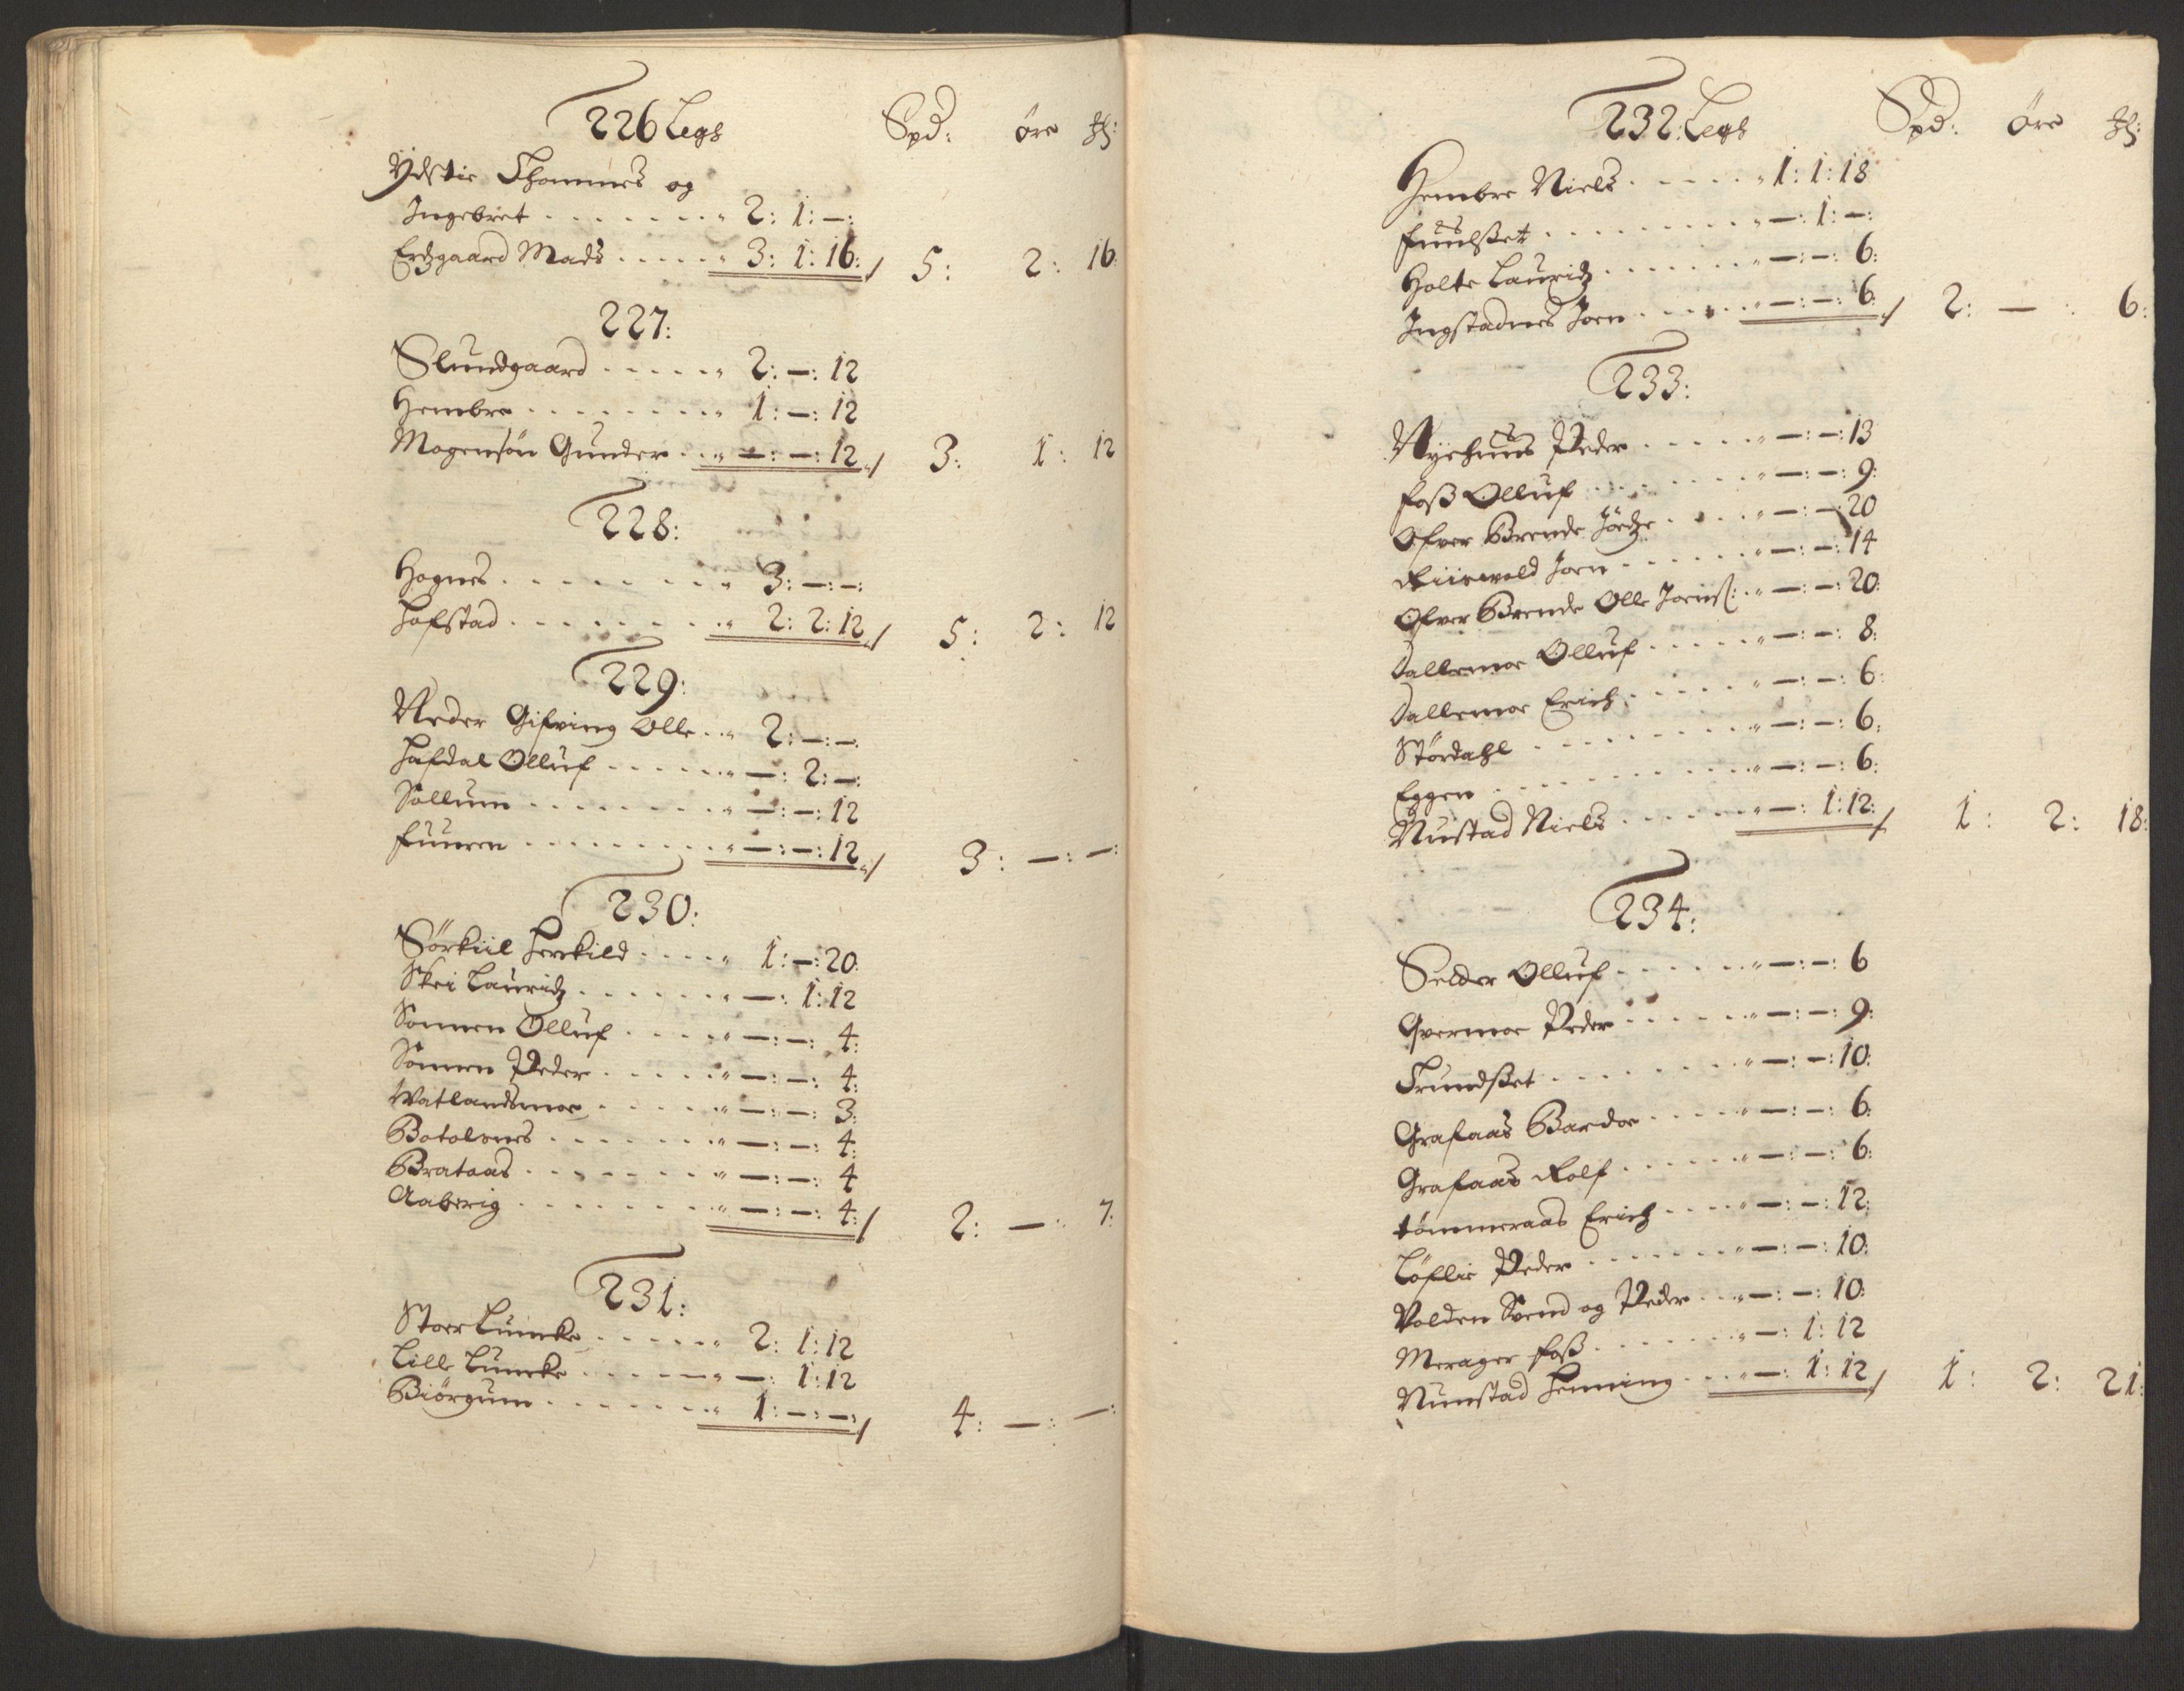 226 Legh Spd: øre ₰:
Ydstie Thommes og
Ingebret . . . . . . . „ 2: 1: —:
Erdgaard Mads . . . . . „ 3: 1: 16: / 5: 2: 16:
227:
Slundgaard . . . . . „ 2: —: 12
Hembre . . . . . . . . „ 1: —: 12
Mogensøn Gunder . . „ —: —: 12 / 3: 1: 12
228:
Hognes . . . . . . . . „ 3: —: —:
Hofstad . . . . . . . . „ 2: 2: 12 / 5: 2: 12
229:
Neder Gifving Olle . . „ 2: —: —:
Hafdal Olluf . . . . . . „ —: 2: —:
Sollum . . . . . . . . „ —: —: 12
Fuuren . . . . . . . . . „ —: —: 12 / 3: —: —:
230:
Sørkiil Herkild . . . . „ 1: —: 20:
Skei Lauridz . . . . . . „ —: 1: 12
Somnen Olluf . . . . . „ —: —: 4:
Somnen Peder . . . . . „ —: —: 4:
Watlandsmoe . . . . . „ —: —: 3:
Botolsnes . . . . . . . „ —: —: 4:
Brataas . . . . . . . . „ —: —: 4
Aaberig . . . . . . . . „ —: —: 4: / 2: —: 7:
231:
Stoer Lumcke . . . . . „ 2: 1: 12
Lille Lumcke . . . . . „ —: 1: 12
Biörgum . . . . . . . „ 1: —: —: / 4: —: —:
232: Legh Spd: øre ₰:
Hembre Niels . . . . . „ 1: 1: 18
Fuulset . . . . . . . . . „ —: 1: —:
Holte Lauridz . . . . . . „ —: —: 6:
Ingstadnes Joen . . . . . „ —: —: 6: / 2: — : 6:
233:
Nyehuus Peder . . . . . „ —: —: 13
Foß Olluf . . . . . . . . „ —: —: 9:
Ofver Brende . . . . „ —: —: 20
Riiswold Joen . . . . . „ —: —: 14
Ofver Brende Olle Joens: . „ —: —: 20:
Dallemoe Olluf . . . . . „ —: —: 8:
Dallemoe Erich . . . . . „ —: —: 6:
Stördahl . . . . . . . . . „ —: —: 6:
Eggen . . . . . . . . . . „ —: —: 6:
Nustad Niels . . . . . . „ —: 1: 12: / 1: 2: 18:
234:
Selder Olluf . . . . . . „ —: —: 6
Qvermoe Peder . . . . . . „ —: —: 9:
Trundset . . . . . . . . „ —: —: 10:
Grafaas Bardoe . . . . . „ —: —: 6:
Grafaas Rolf . . . . . . „ —: —: 6:
Tømmeraas Erich . . . . „ —: —: 12:
Løflie Peder . . . . . . . „ —: —: 10:
Volden Svend og Peder . . „ —: —: 10:
Merager Foß . . . . . . . „ —: 1: 12
Numstad Henning . . . „ —: 1: 12 / 1: 2: 21: